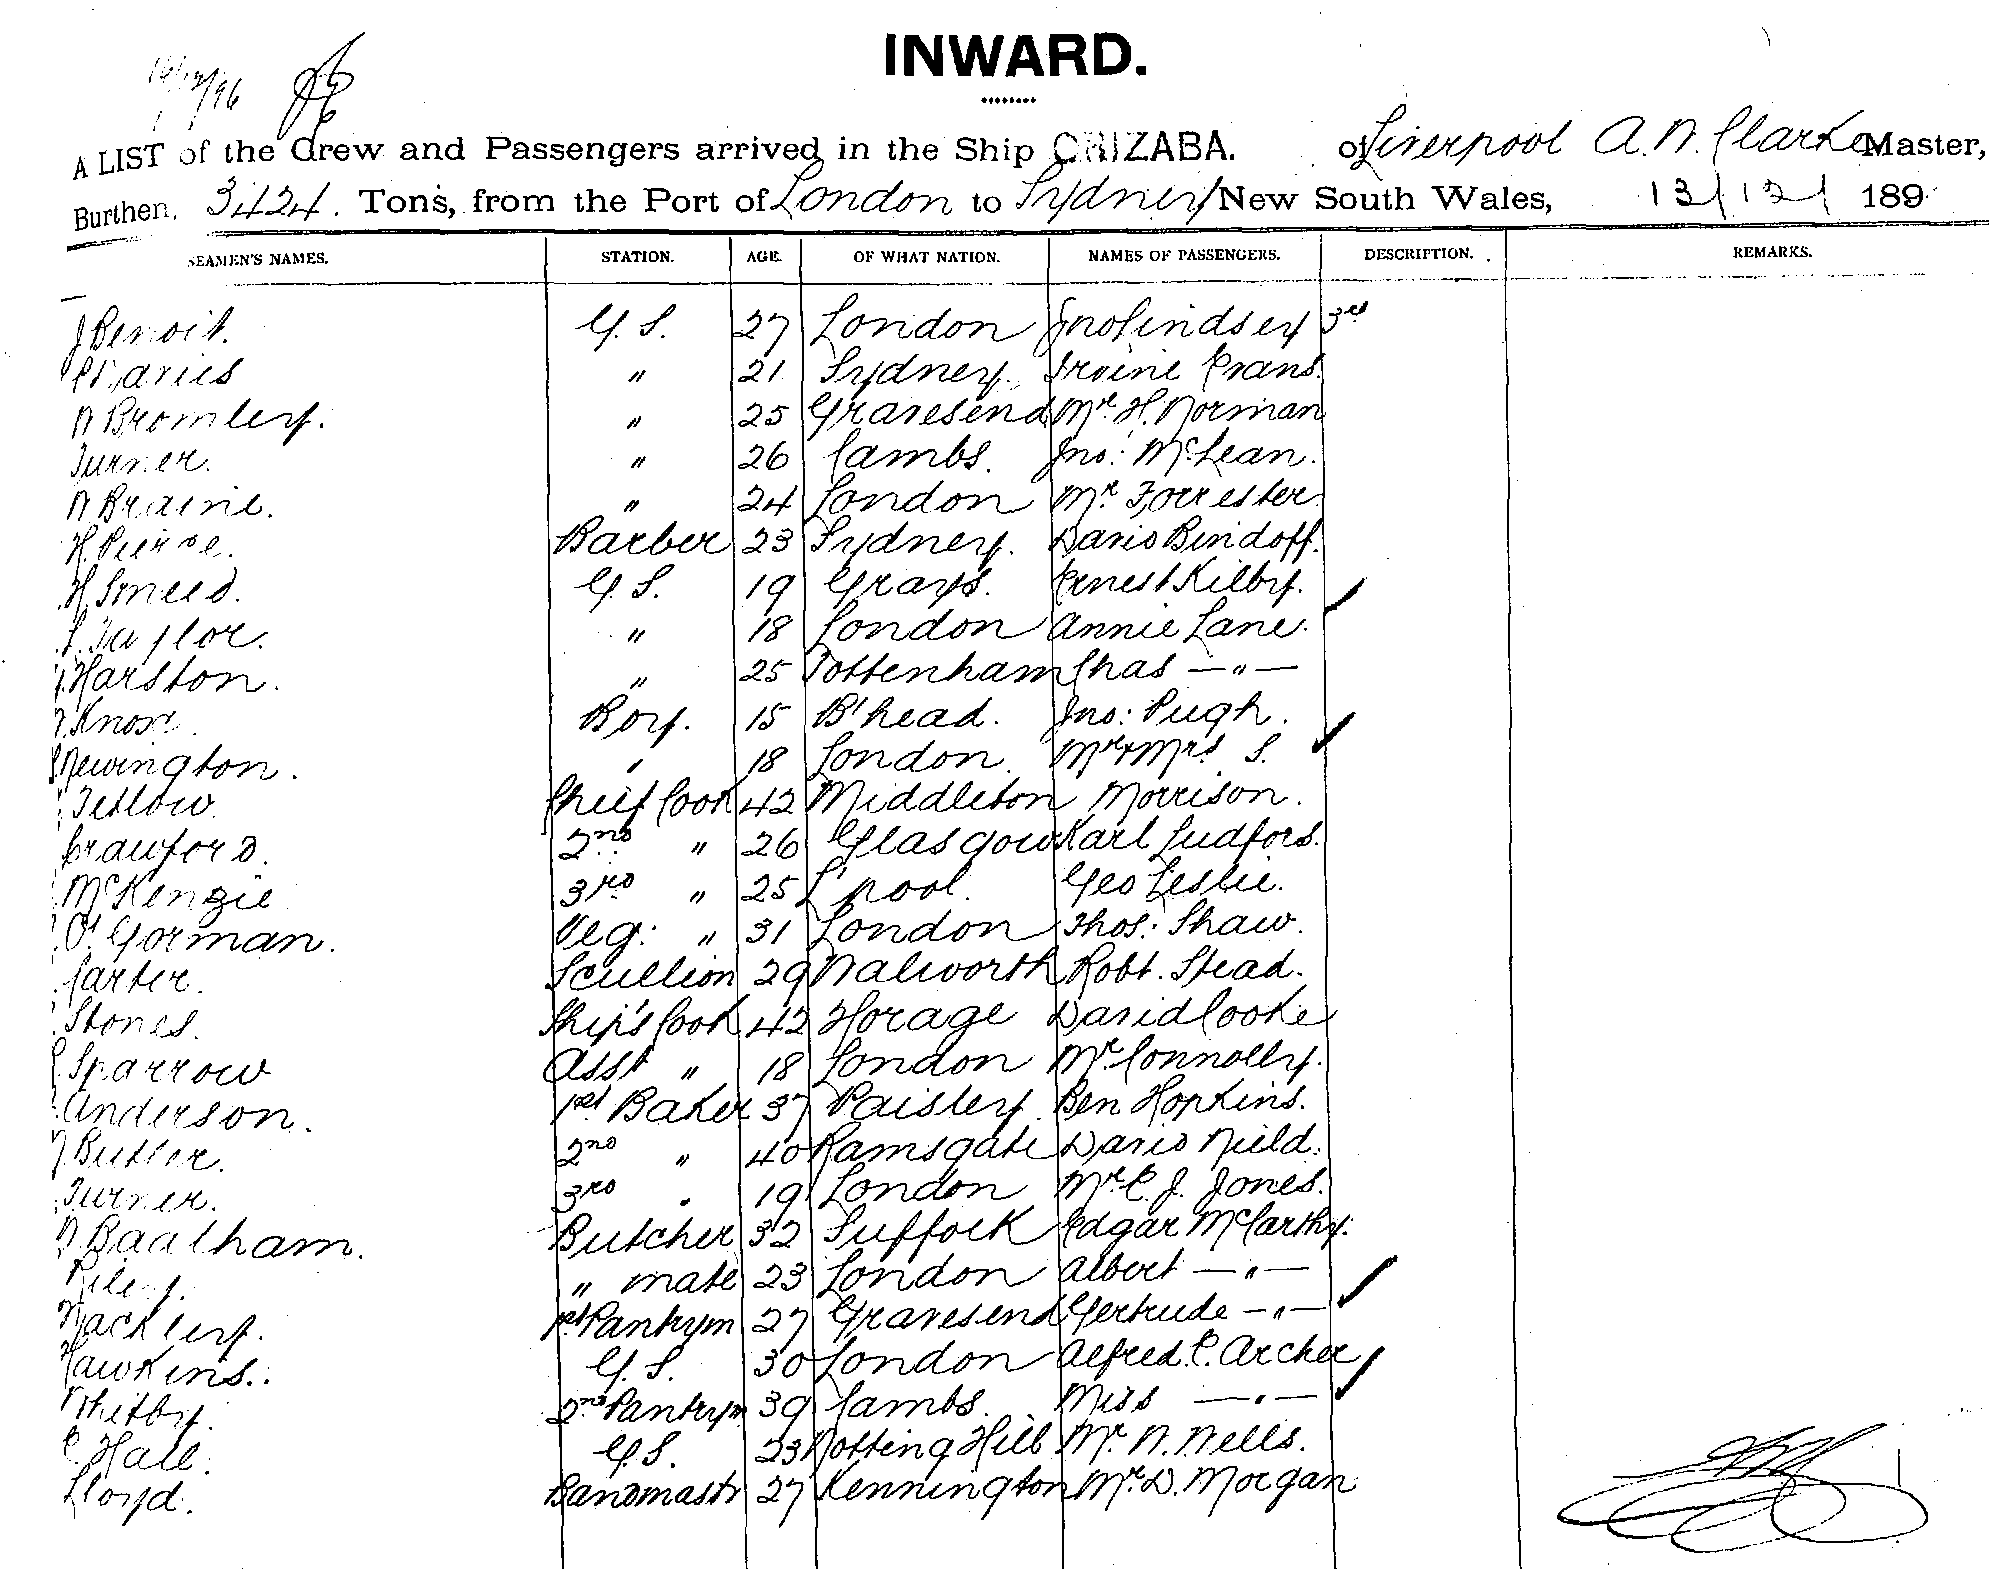 INWARD.
A LIST of the Crew and Passengers arrived in the Ship ORIZABA. of Liverpool A. W. Clarke Master,
Burthen, 3424. Tons, from the Port of London to Sydney New South Wales, 13/12/ 189
SEAMEN'S NAMES. STATION. AGE. OF WHAT NATION. NAMES OF PASSENGERS. DESCRIPTION. REMARKS.
J Benoit. G. S. 27 London Jno Lindsey 3rd
Davies " 21 Sydney. Irvine Evans.
W Bromley. " 25 Gravesend Mr. H. Norman
Turner. " 26 Cambs. Jno: McLean.
W Braine. " 24 London Mr. Forrester
H. Pierce. Barber 23 Sydney. David Bindoff.
H Smeed. G. S. 19 Grays. Ernest Kilby.
Taylor. " 18 London Annie Lane.
Harston. " 25 Tottenham Chas — " —
Knox. Boy. 15 B'head. Jno: Pugh.
Newington. " 18 London. Mr & Mrs S.
Tetlow. Chief Cook 42 Middleton Morrison.
Crawford. 2nd " 26 Glasgow Karl Ludfors.
McKenzie 3rd " 25 L'pool. Geo Leslie.
O'Gorman. Veg: " 31 London Thos: Shaw.
Carter. Scullion 29 Walworth Robt. Stead.
Stones. Ship's Cook 42 Horage David Cooke
Sparrow Asst " 18 London Mr. Connolly.
Anderson. 1st Baker 37 Paisley Ben Hopkins.
Butler. 2nd " 40 Ramsgate David Nield.
Turner. 3rd " 19 London Mr. E. J. Jones.
Baalham. Butcher 32 Suffolk Edgar McCarthy.
Riley. " mate 23 London Albert — " —
Mackley. 1st Pantrym 27 Gravesend Gertrude — " —
Hawkins. G. S. 30 London Alfred. E. Archer
Whitby. 2nd Pantrym 39 Cambs. Miss — " —
E Hall. G. S. 23 Notting Hill Mr. W. Wells.
Lloyd. Bandmastr 27 Kennington Mr. D. Morgan